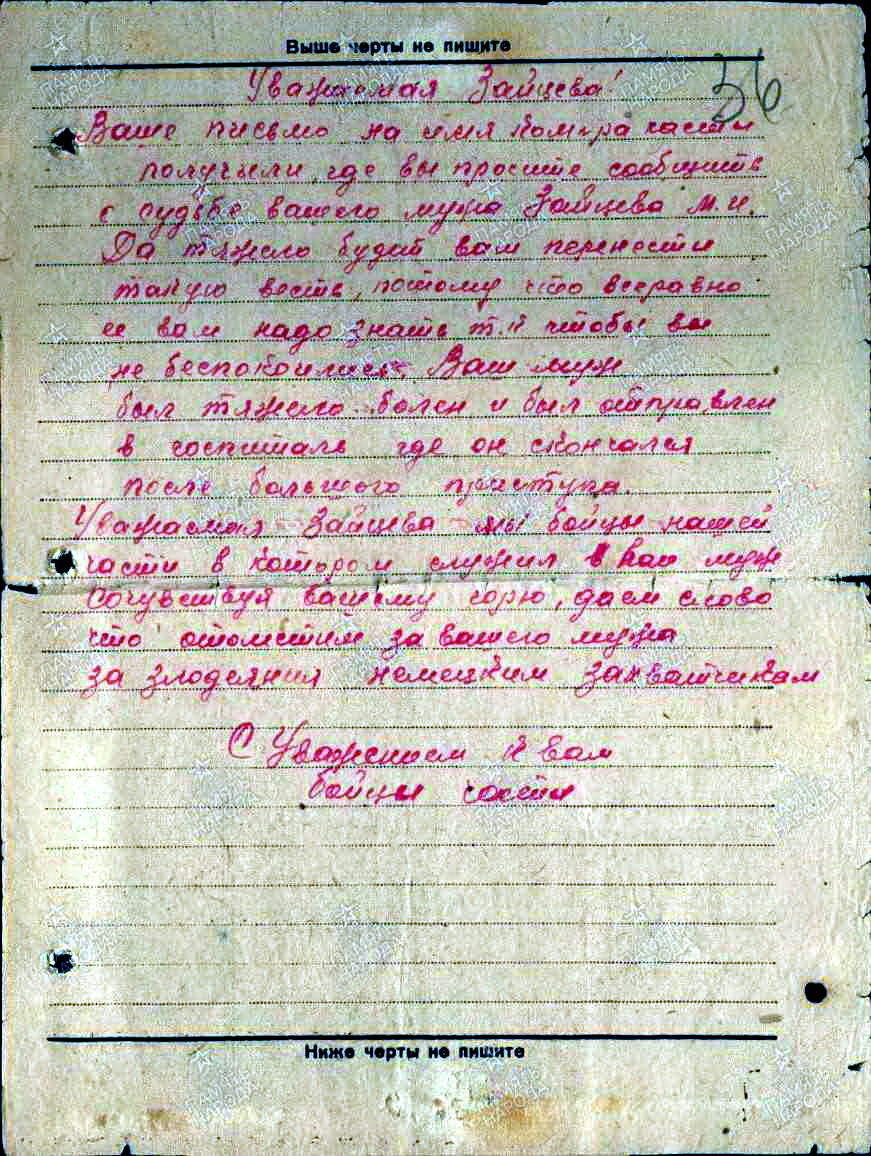 Выше черты не пишите
56
Уважаемая Зайцева!
Ваше письмо на имя Ком-ра части
получили, где вы просите сообщить
о судьбе вашего мужа Зайцева М.И.
Да тяжело будет вам перенести
такую весть, потому что всеравно
ее вам надо знать т.к чтобы вы
не беспокоились. Ваш муж
был тяжело болен и был отправлен
в госпиталь где он скончался
после большого приступа.
Уважаемая Зайцева мы бойцы нашей
части в котором служил Ваш муж
Сочувствуя вашему горю, даем слово
что отомстим за вашего мужа
за злодеяния немецким захватчикам
С Уважением к вам
бойцы части
Ниже черты не пишите
ПАМЯТЬ НАРОДА